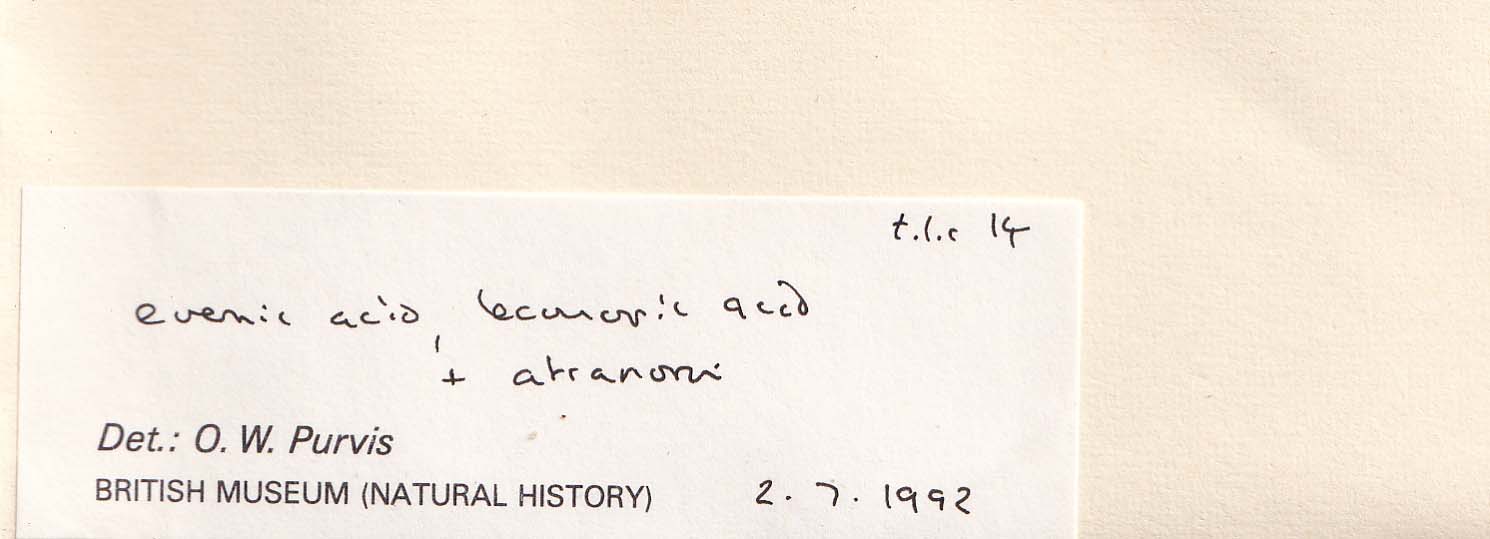 t.l.c 14
evernic acid, lecanoric acid
+ atranorin
Det.: O. W. Purvis
BRITISH MUSEUM (NATURAL HISTORY) 2. 7. 1992